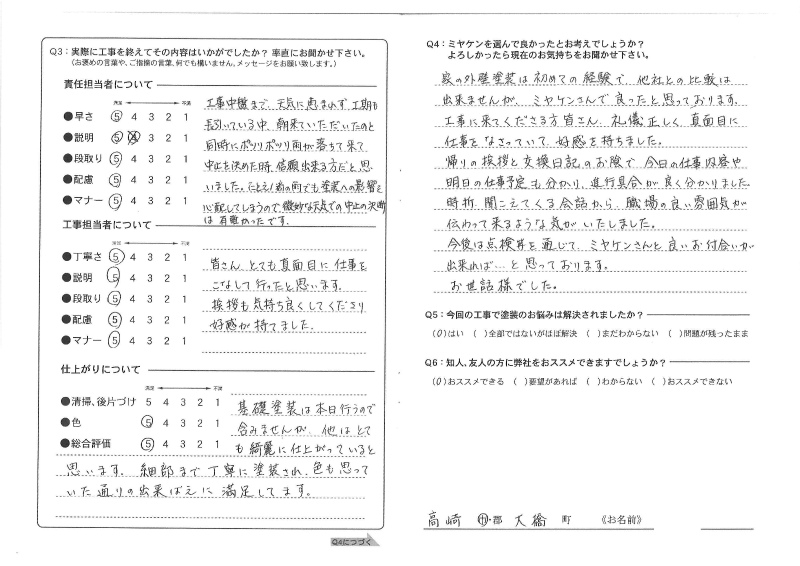 Q3：実際に工事を終えてその内容はいかがでしたか？ 率直にお聞かせ下さい。
（お褒めの言葉や、ご指摘の言葉、何でも構いません。メッセージをお願い致します。）
責任担当者について
満足 不満
●早さ 5 4 3 2 1
●説明 5 4 3 2 1
●段取り 5 4 3 2 1
●配慮 5 4 3 2 1
●マナー 5 4 3 2 1
工事中盤まで、天気に恵まれず工期も
長引いている中、朝来ていただいたのと
同時にポツリポツリ雨が落ちて来て
中止を決めた時、信頼出来る方だと思
いました。たとえ少雨の雨でも塗装への影響を
心配してしまうので、微妙な天気での中止の決断
は有難かったです。
工事担当者について
満足 不満
●丁寧さ 5 4 3 2 1
●説明 5 4 3 2 1
●段取り 5 4 3 2 1
●配慮 5 4 3 2 1
●マナー 5 4 3 2 1
皆さん、とても真面目に仕事を
こなして行ったと思います。
挨拶も気持ち良くしてくださり
好感が持てました。
仕上がりについて
満足 不満
●清掃、後片づけ 5 4 3 2 1
●色 5 4 3 2 1
●総合評価 5 4 3 2 1
基礎塗装は本日行うので
含みませんが、他はとて
も綺麗に仕上がっていると
思います。細部まで丁寧に塗装され、色も思って
いた通りの出来ばえに満足してます。
Q4につづく
Q4：ミヤケンを選んで良かったとお考えでしょうか？
よろしかったら現在のお気持ちをお聞かせ下さい。
家の外壁塗装は初めての経験で、他社との比較は
出来ませんが、ミヤケンさんで良ったと思っております。
工事に来てくださる方皆さん、礼儀正しく、真面目に
仕事をなさっていて、好感を持ちました。
帰りの挨拶と交換日記のお陰で、今日の仕事内容や
明日の仕事予定も分かり、進行具合が良く分かりました。
時折、聞こえてくる会話から、職場の良い雰囲気が
伝わって来るような気がいたしました。
今後は点検等を通じて、ミヤケンさんと良いお付合いが
出来れば…と思っております。
お世話様でした。
Q5：今回の工事で塗装のお悩みは解決されましたか？
（○）はい （ ）全部ではないがほぼ解決 （ ）まだわからない （ ）問題が残ったまま
Q6：知人、友人の方に弊社をおススメできますでしょうか？
（○）おススメできる （ ）要望があれば （ ）わからない （ ）おススメできない
高崎 市・郡 大橋 町 《お名前》